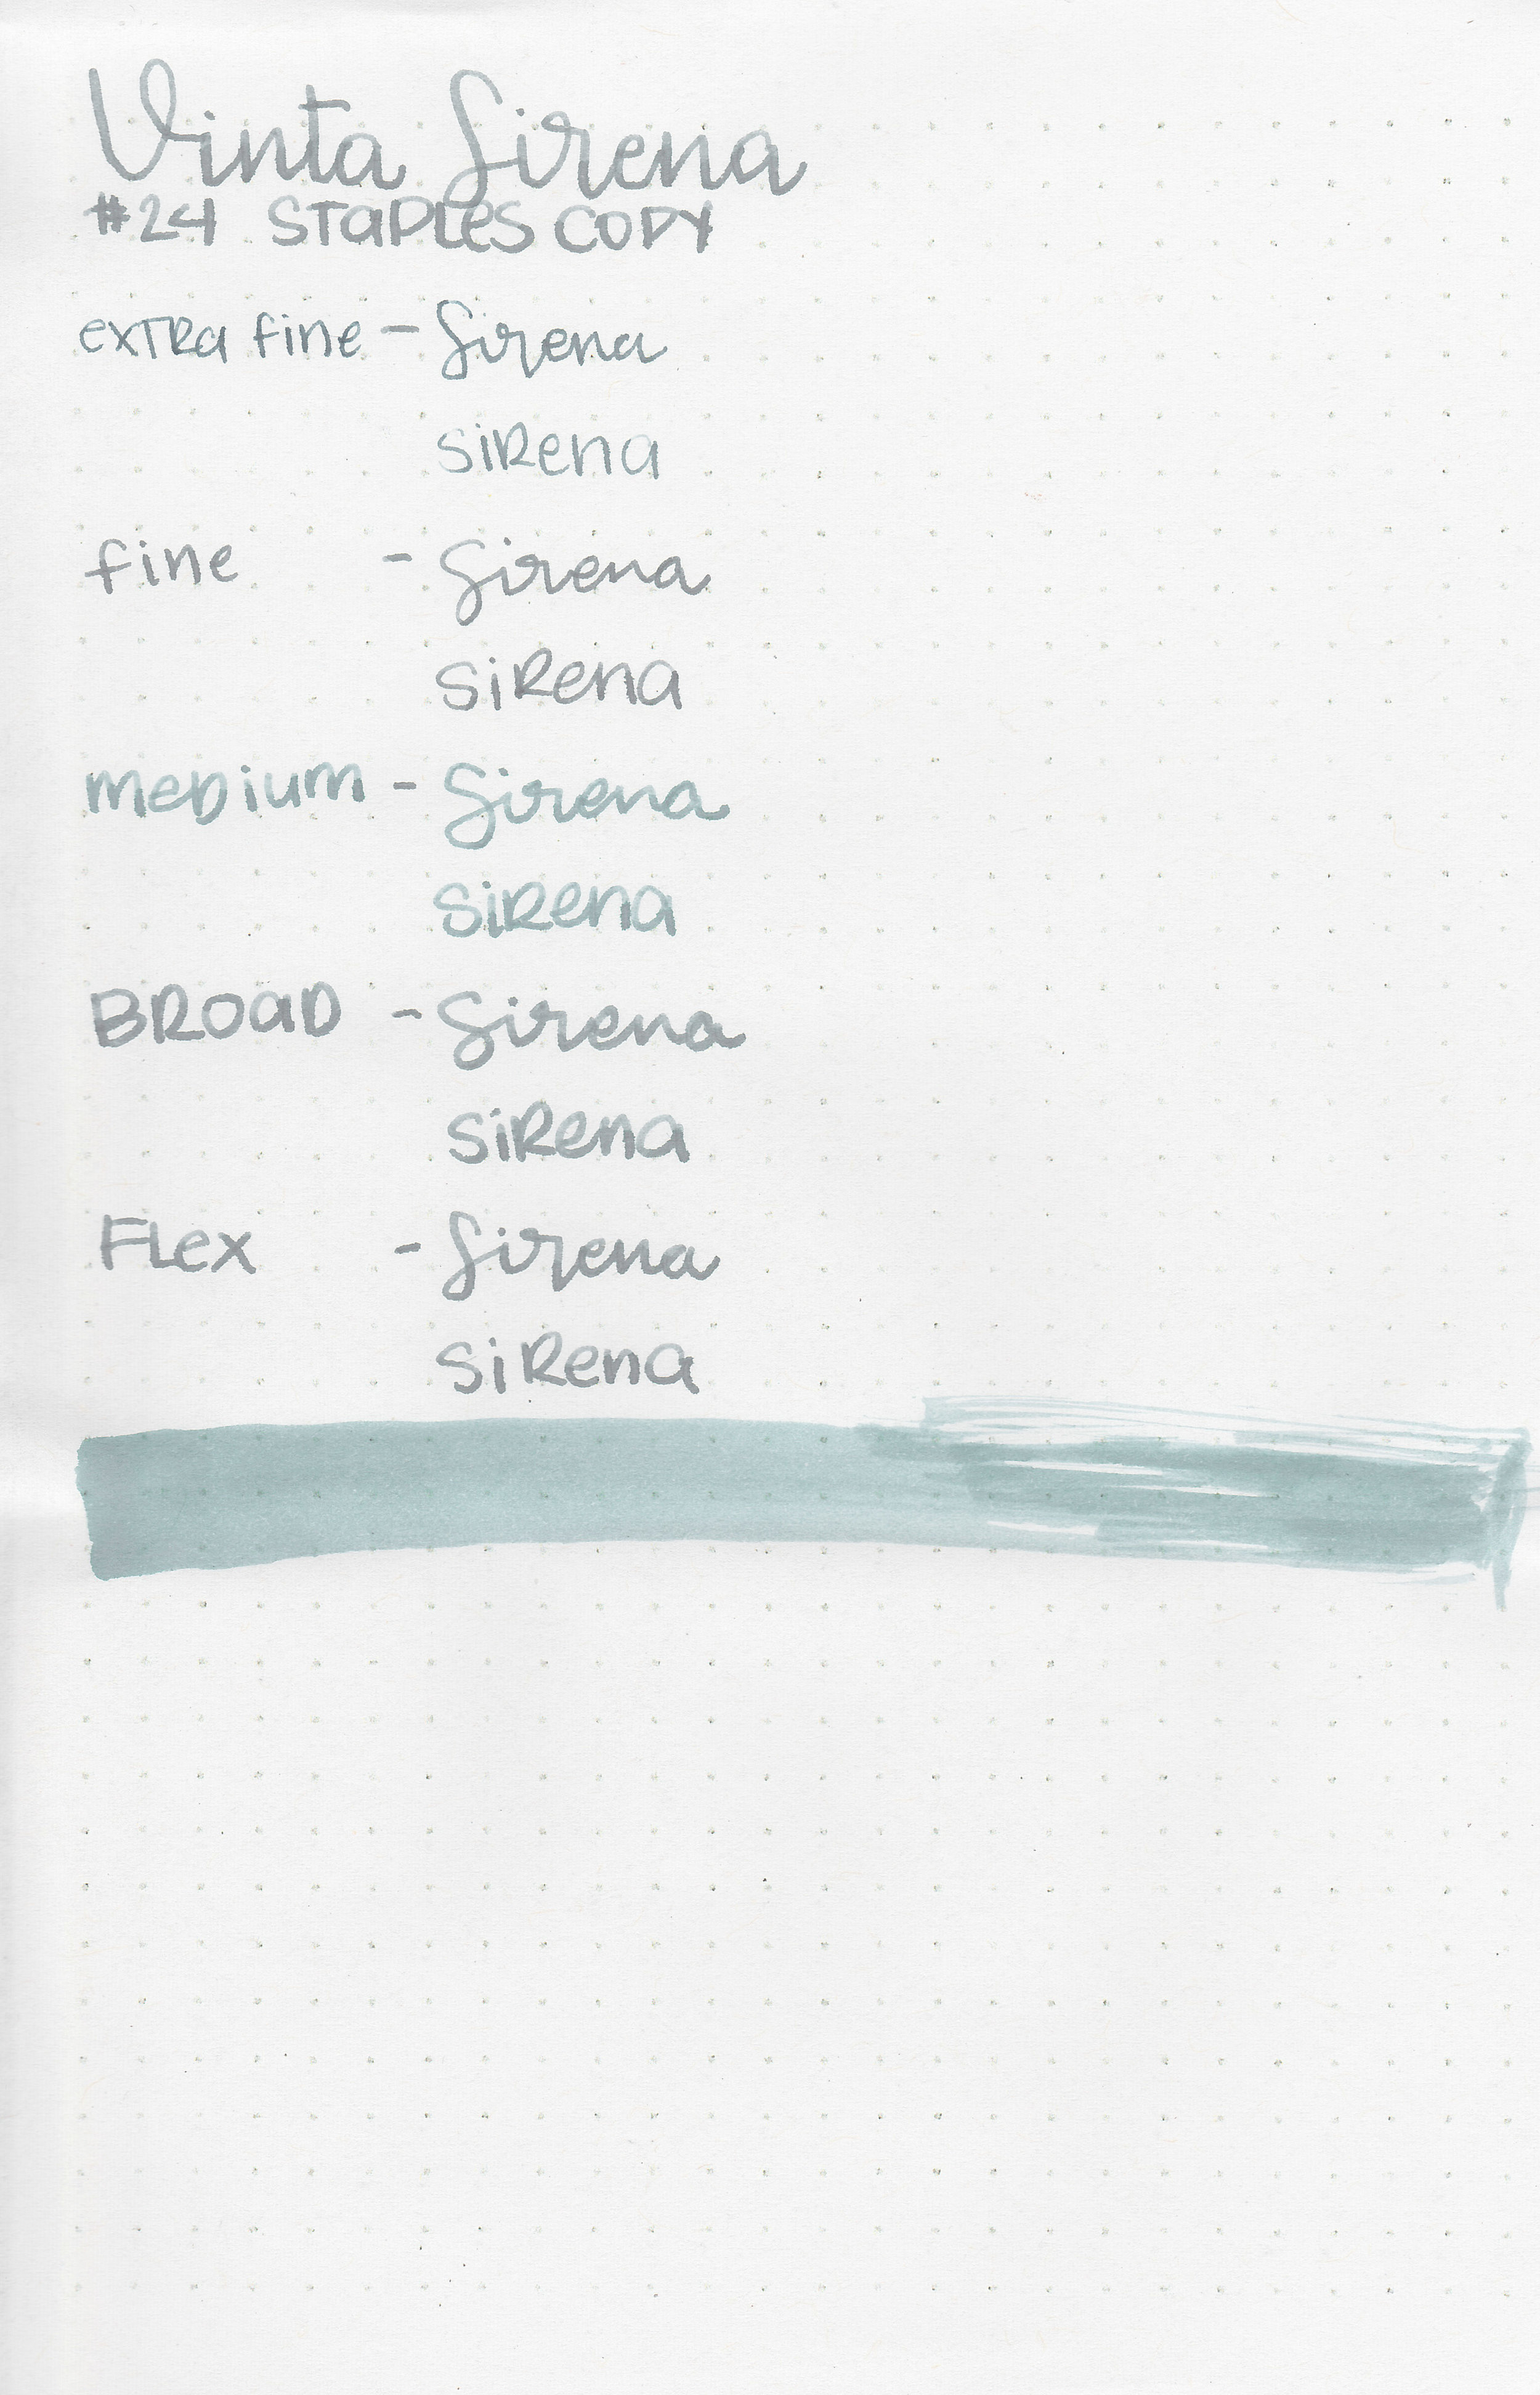 Vinta Sirena
#24 STaPLes COPY
exTRa fine - Sirena
siRena
fine - Sirena
siRena
meDium - Sirena
siRena
BROaD - Sirena
siRena
FLex - Sirena
siRena